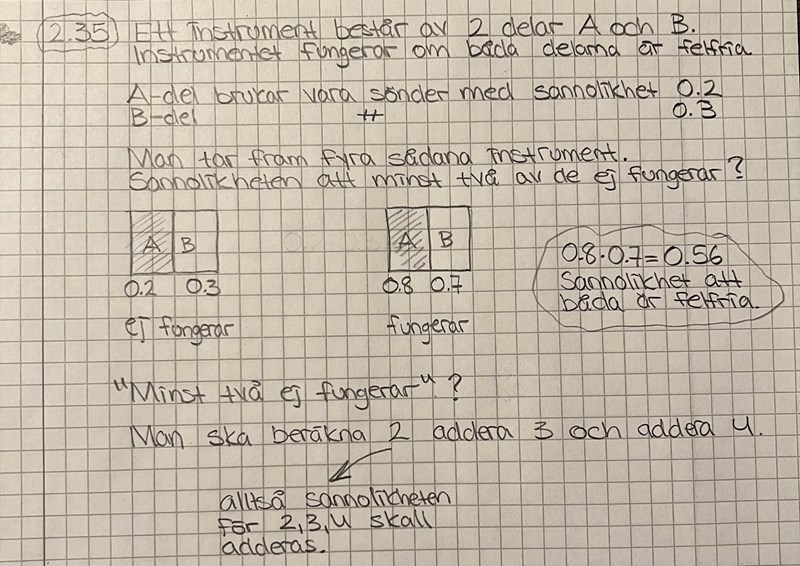 2.35 Ett instrument består av 2 delar A och B.
Instrumentet fungerar om båda delarna är felfria
A-del brukar vara sönder med sannolikhet 0.2
B-del -||- 0.3
Man tar fram fyra sådana instrument.
Sannolikheten att minst två av de ej fungerar?
A B
0.2 0.3
ej fungerar
A B
0.8 0.7
fungerar
0.8·0.7=0.56
Sannolikhet att
båda är felfria.
"Minst två ej fungerar"?
Man ska beräkna 2 addera 3 och addera 4.
alltså sannolikheten
för 2,3,4 skall
adderas.